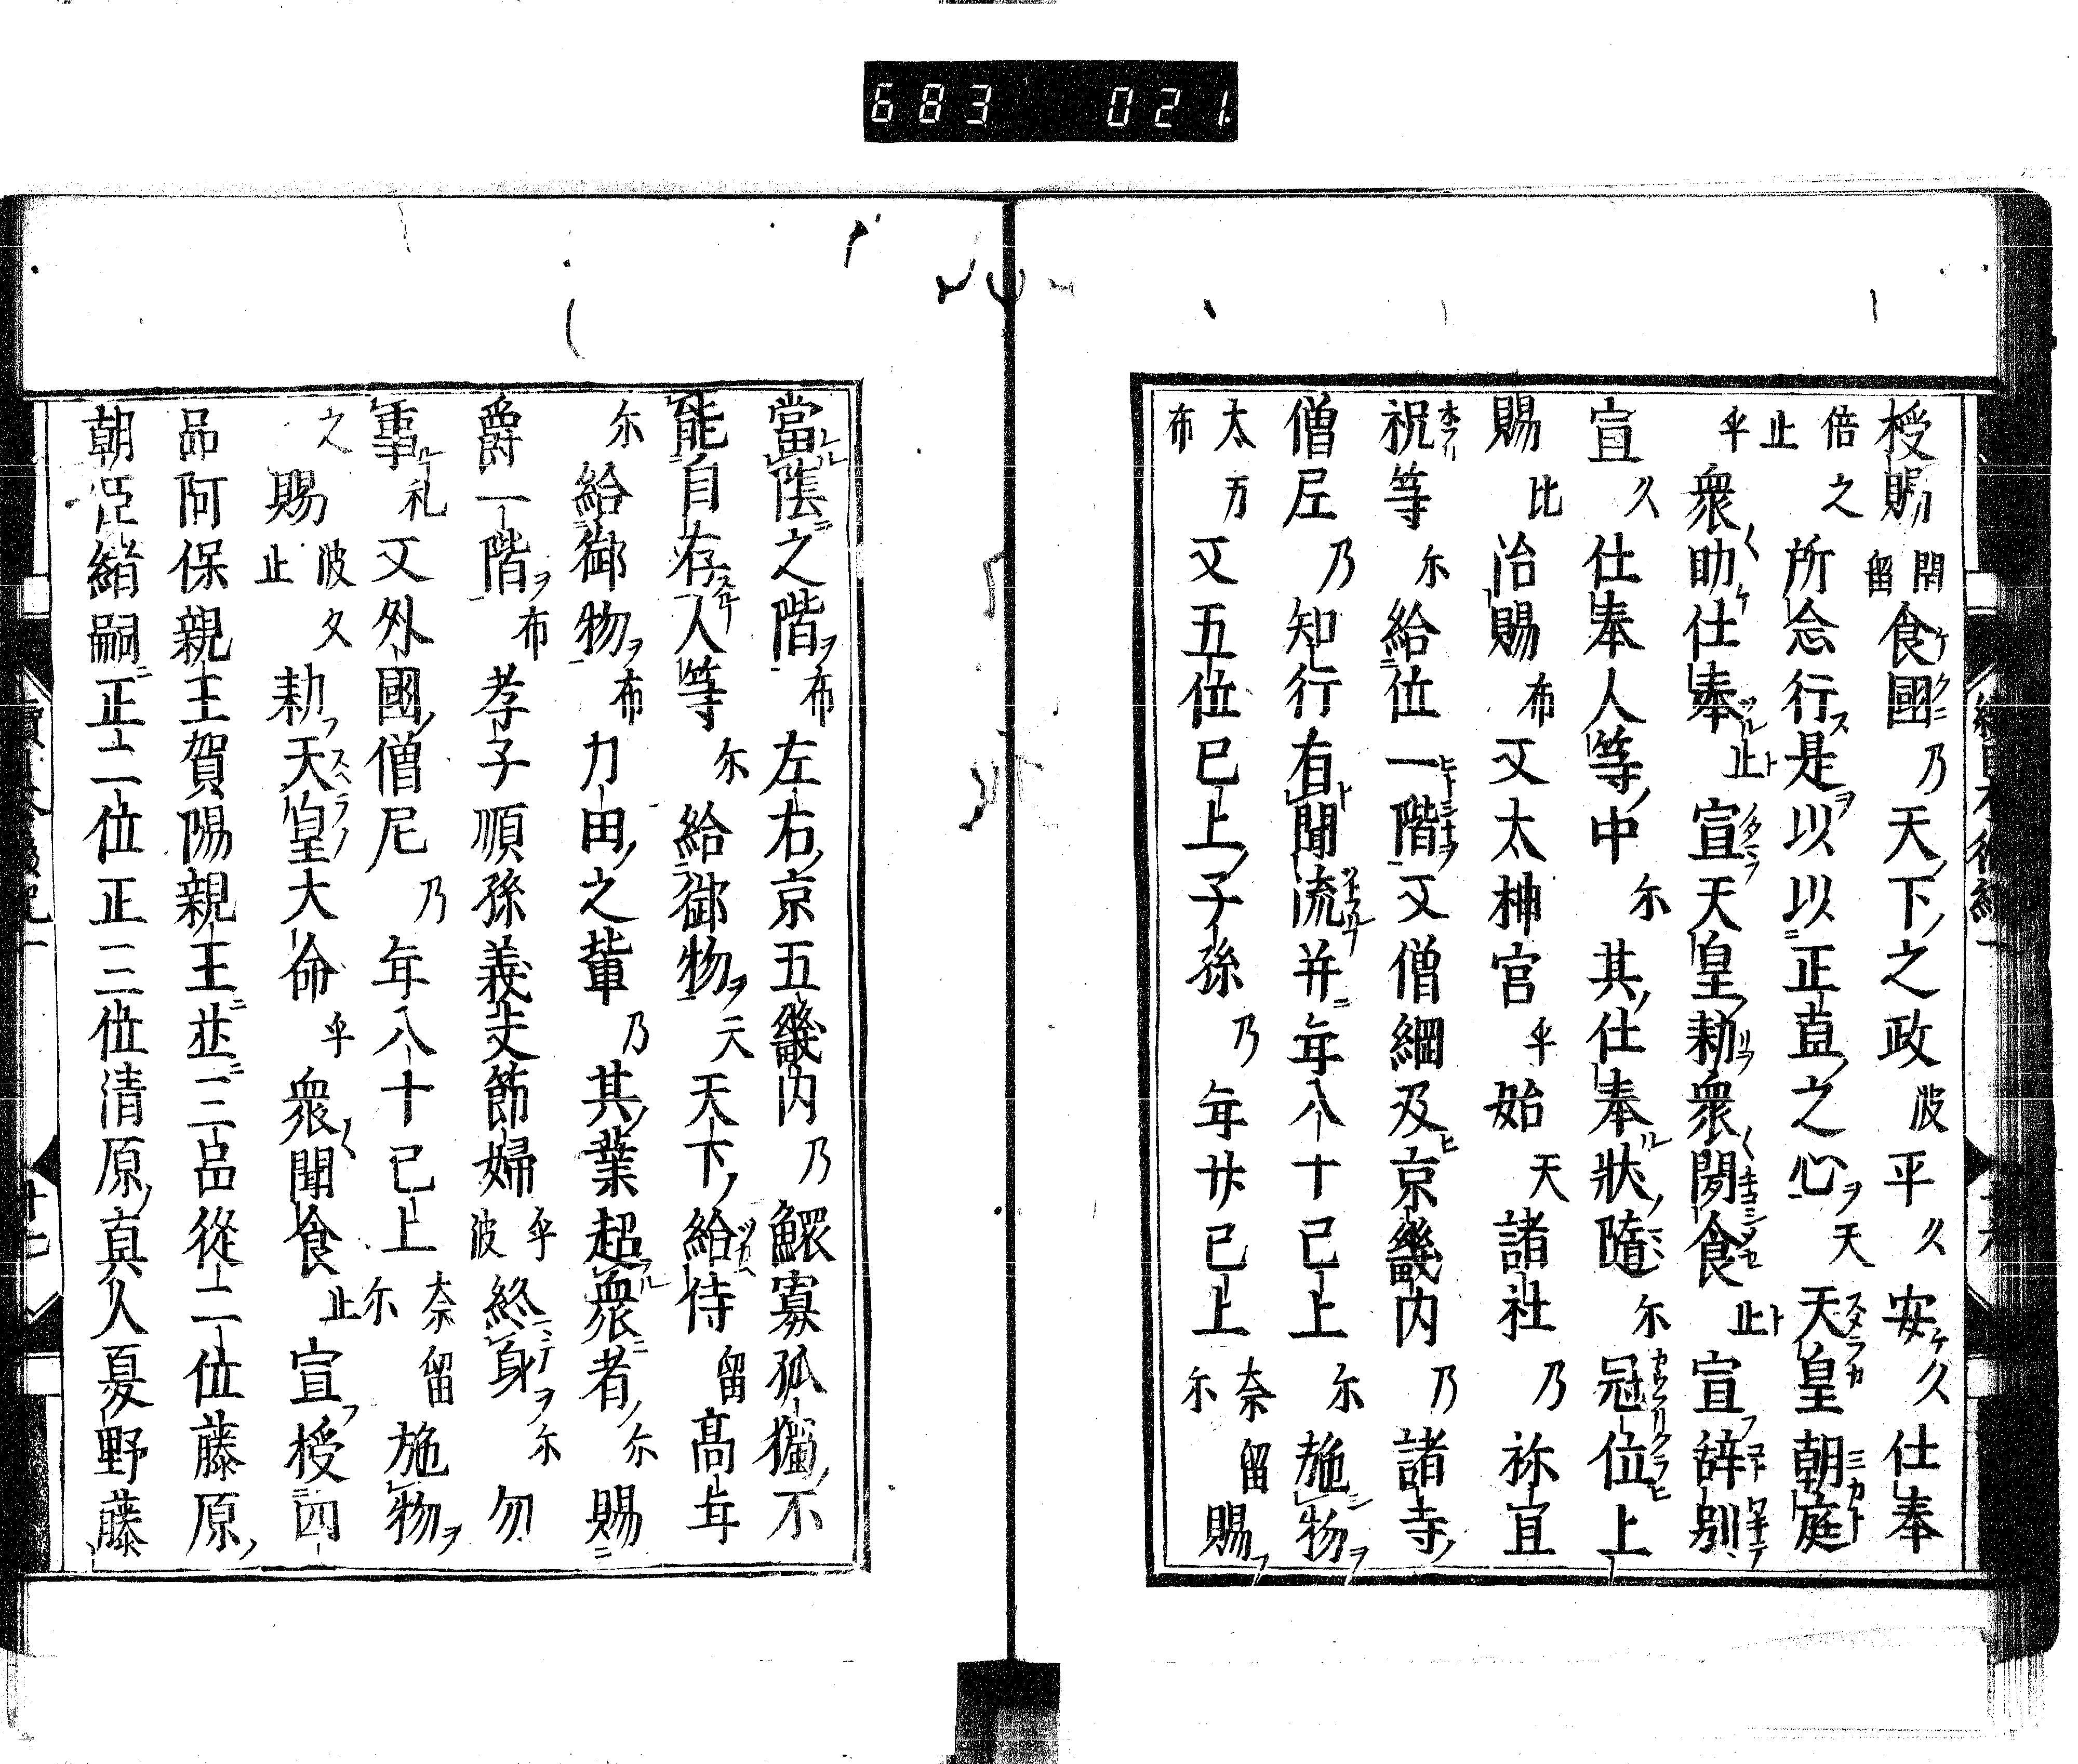 683 021.
授賜閇留食國乃天下之政波平久安久仕奉
倍之止所念行是以以正直之心天天皇朝庭
乎衆助仕奉止宣天皇勅衆聞食止宣辞別
宣久仕奉人等中尓其仕奉狀隨尓冠位上
賜比治賜布又太神宮乎始天諸社乃祢宜
祝等尓給位一階又僧綱及京畿内乃諸寺
僧尼乃知行有聞流并年八十已上尓施物
布太万又五位已上子孫乃年廿已上尓奈留賜
當䕃之階布左右京五畿内乃鰥寡孤獨不
能自存人等尓給御物天天下給侍留高年
尓給御物布力田之輩乃其業超衆者尓賜
爵一階布孝子順孫義夫節婦乎波終身尓勿
事礼又外國僧尼乃年八十已上尓奈留施物
之賜波久止勅天皇大命乎衆聞食止宣授四
品阿保親王賀陽親王並三品從二位藤原
朝臣緒嗣正二位正三位清原真人夏野藤